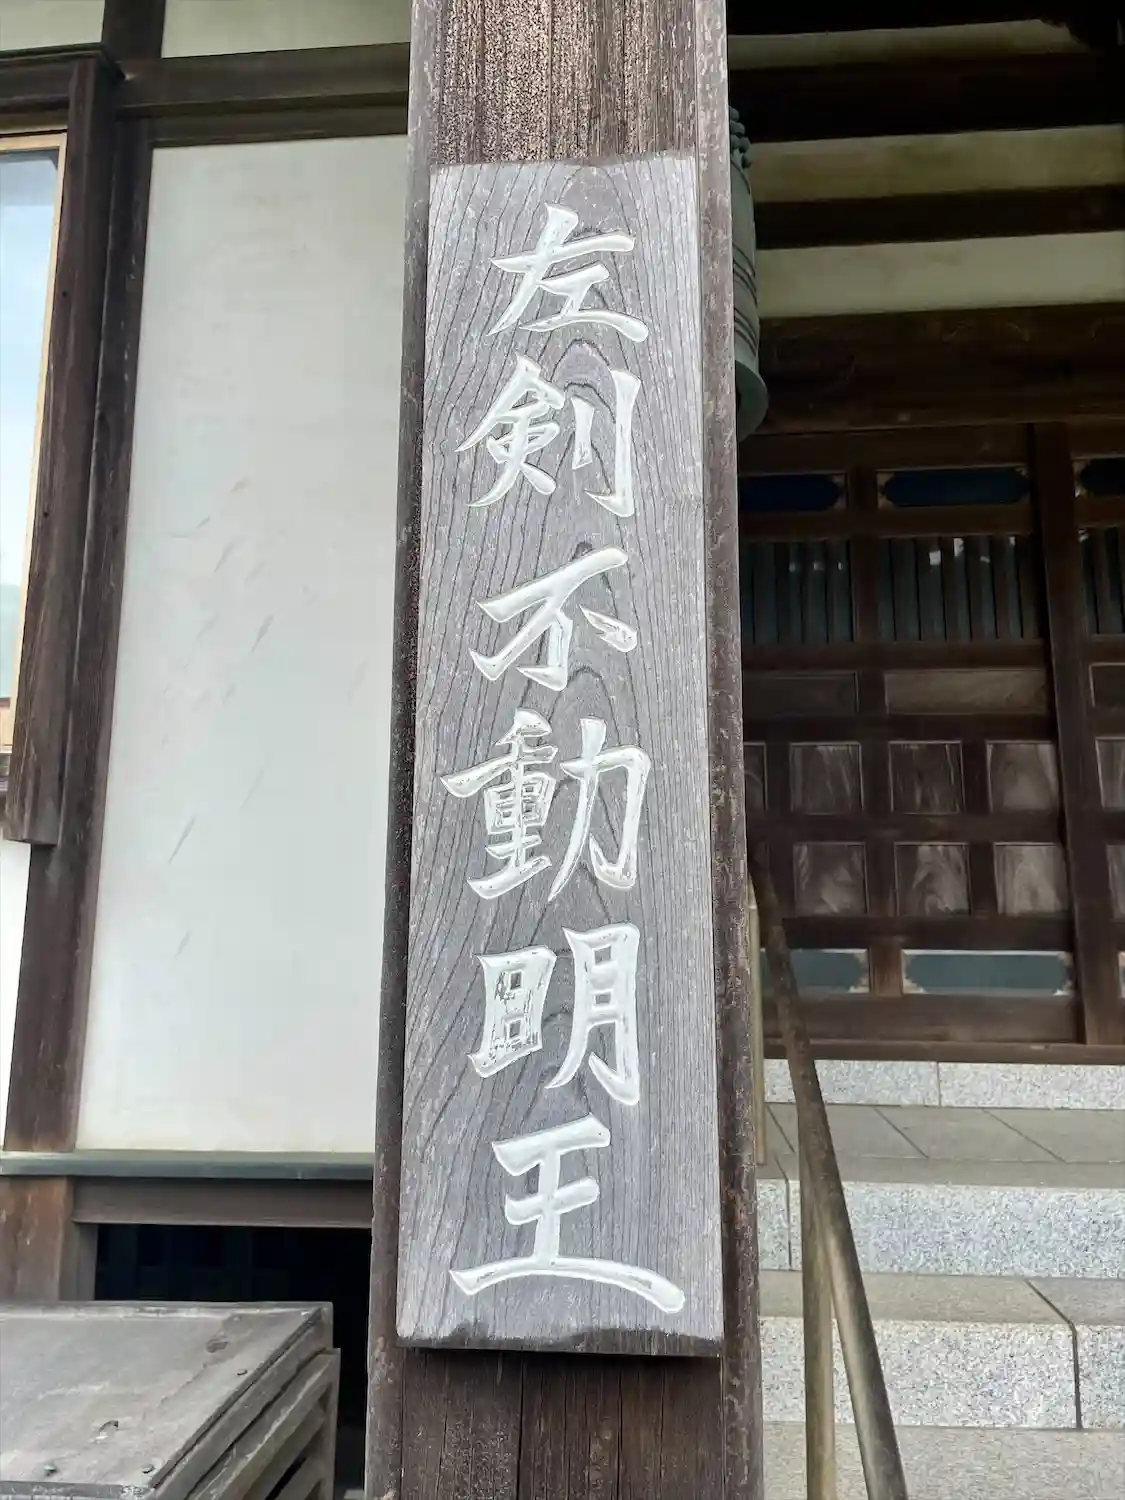 左剣不動明王